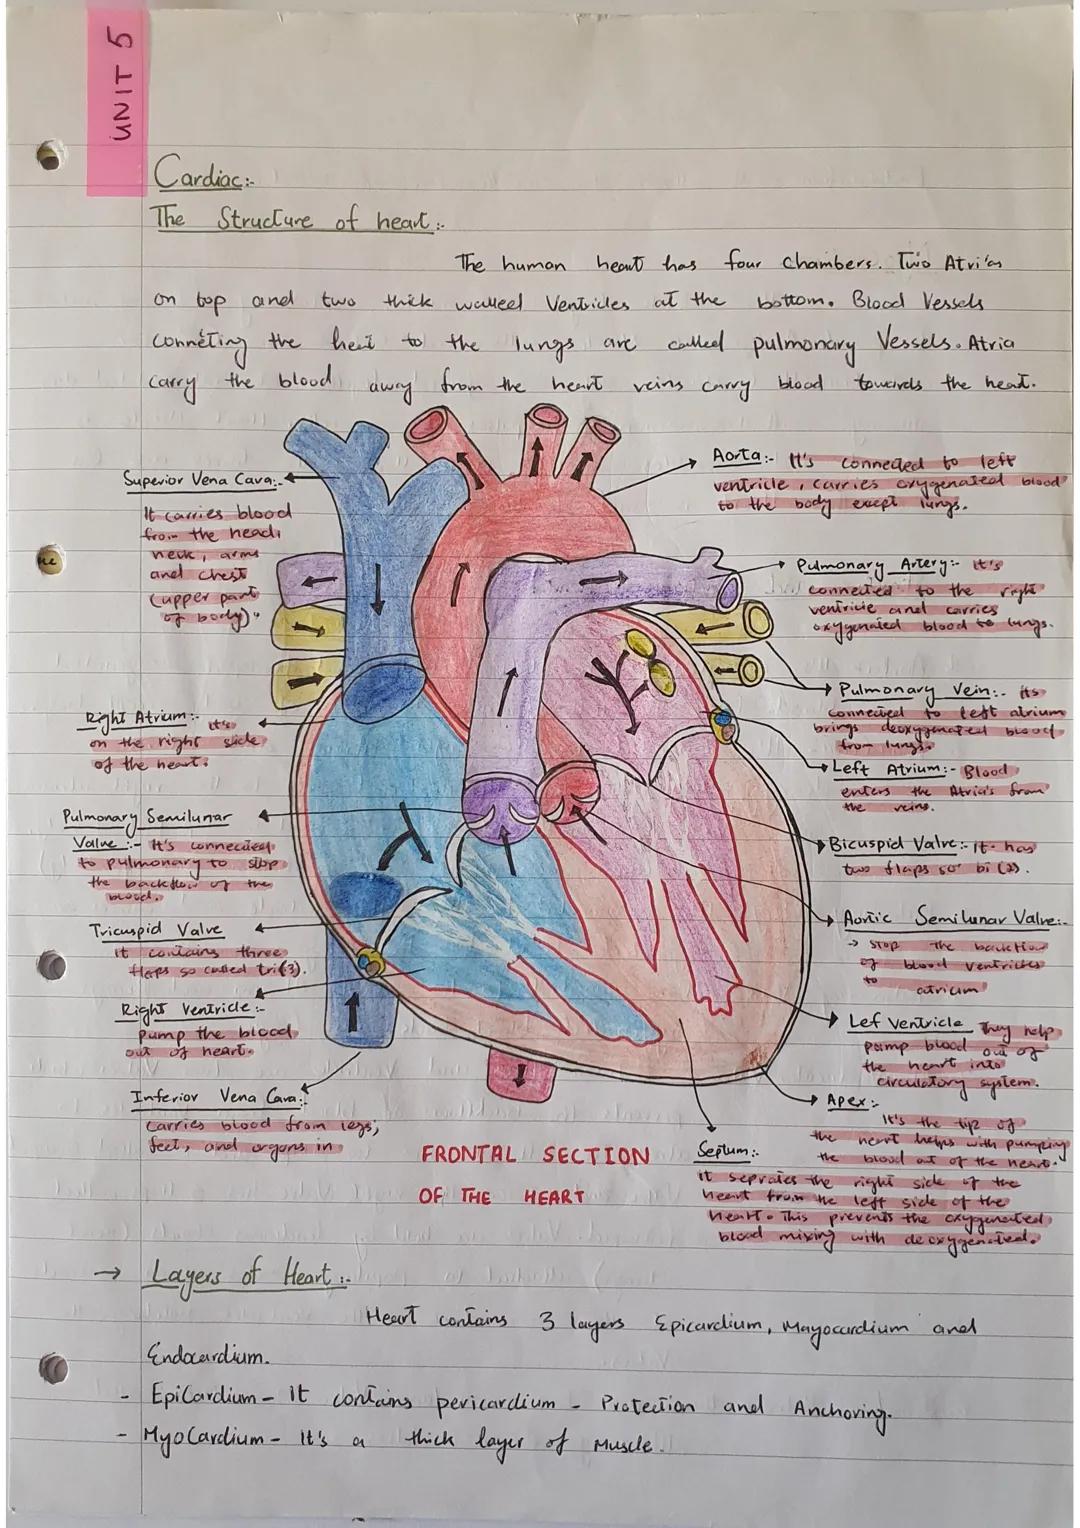 UNIT 5
Cardiac:-
The Structure of heart:-
The human heart has four chambers. Two Atria's
on top and two thick walled Ventricles at the bottom. Blood Vessels
conneting the heat to the lungs are called pulmonary Vessels. Atria
carry the blood away from the heart veins carry blood towards the heat.
Superior Vena Cava:-
It carries blood
from the head,
neck, arms
and chest
(upper part
of body)"
Right Atrium:- it's
on the right side
of the heart.
Pulmonary Semilunar
Valve:- It's connected
to pulmonary to stop
the backflow of the
blood.
Tricuspid Valve
it contains three
flaps so called tri(3).
Right Ventricle:-
pump the blood
out of heart.
Inferior Vena Cava:-
Carries blood from legs,
feet, and organs in
Aorta:- It's connected to left
ventricle, carries oxygenated blood
to the body except lungs.
Pulmonary Artery:- it's
connected to the right
ventricle and carries
oxygenated blood to lungs.
Pulmonary Vein:- its
connected to left atrium
brings deoxygenated blood
from lungs.
Left Atrium:- Blood
enters the Atria's from
the veins.
Bicuspid Valve:- It has
two flaps so bi (2).
Aortic Semilunar Valve:-
→ stop the backflow
of blood ventricles
to atrium
Lef Ventricle They help
pump blood out of
the heart into
circulatory system.
Apex:-
It's the tip of
the heart helps with pumping
the blood out of the heart.
Septum:-
it seprates the right side of the
heart from the left side of the
heart. This prevents the oxygenated
blood mixing with deoxygenated.
FRONTAL SECTION
OF THE HEART
→ Layers of Heart:-
Heart contains 3 layers Epicardium, Mayocardium and
Endocardium.
- EpiCardium - It contains pericardium - Protection and Anchoring.
- MyoCardium - It's a thick layer of Muscle.